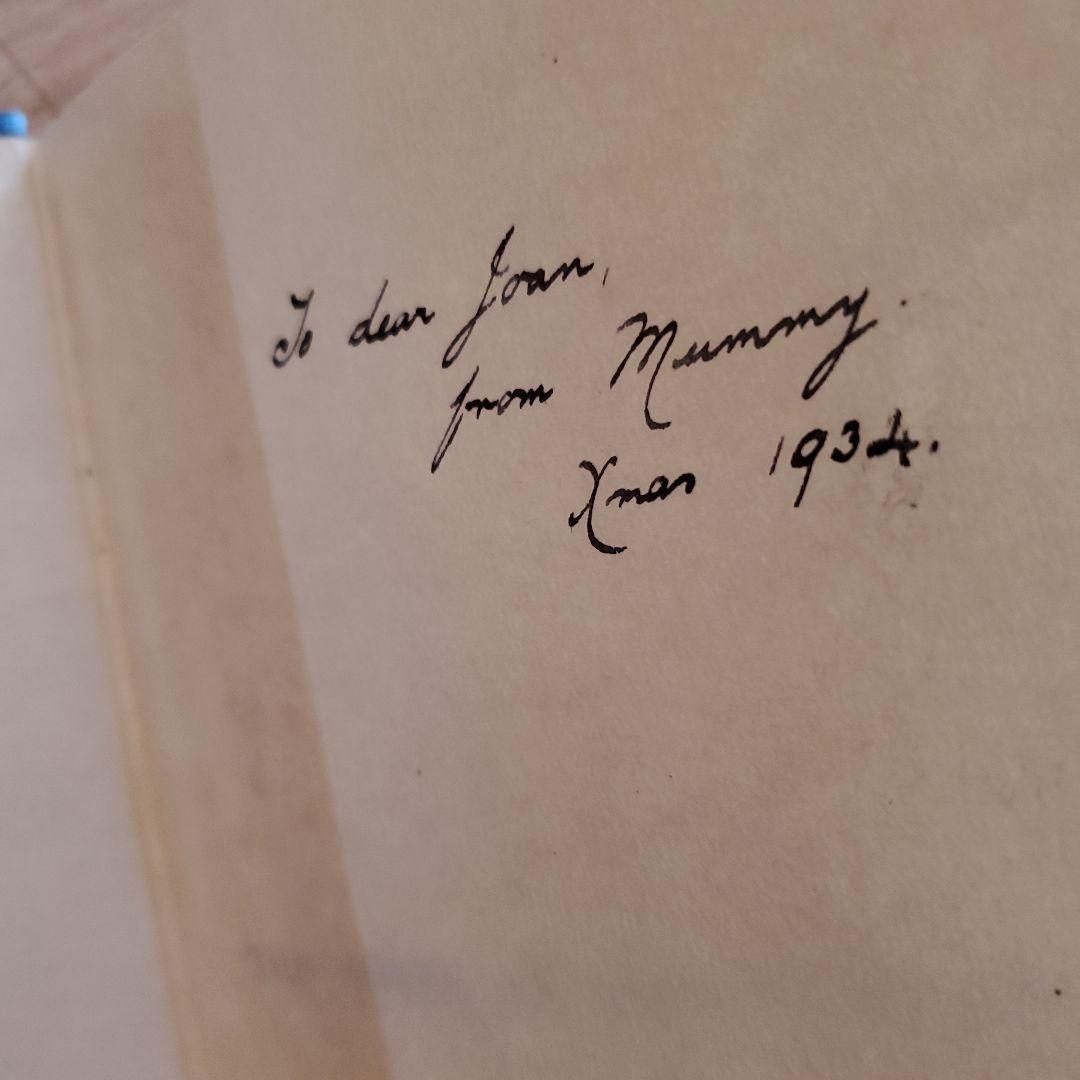 To dear Joan,
from Mummy.
Xmas 1934.